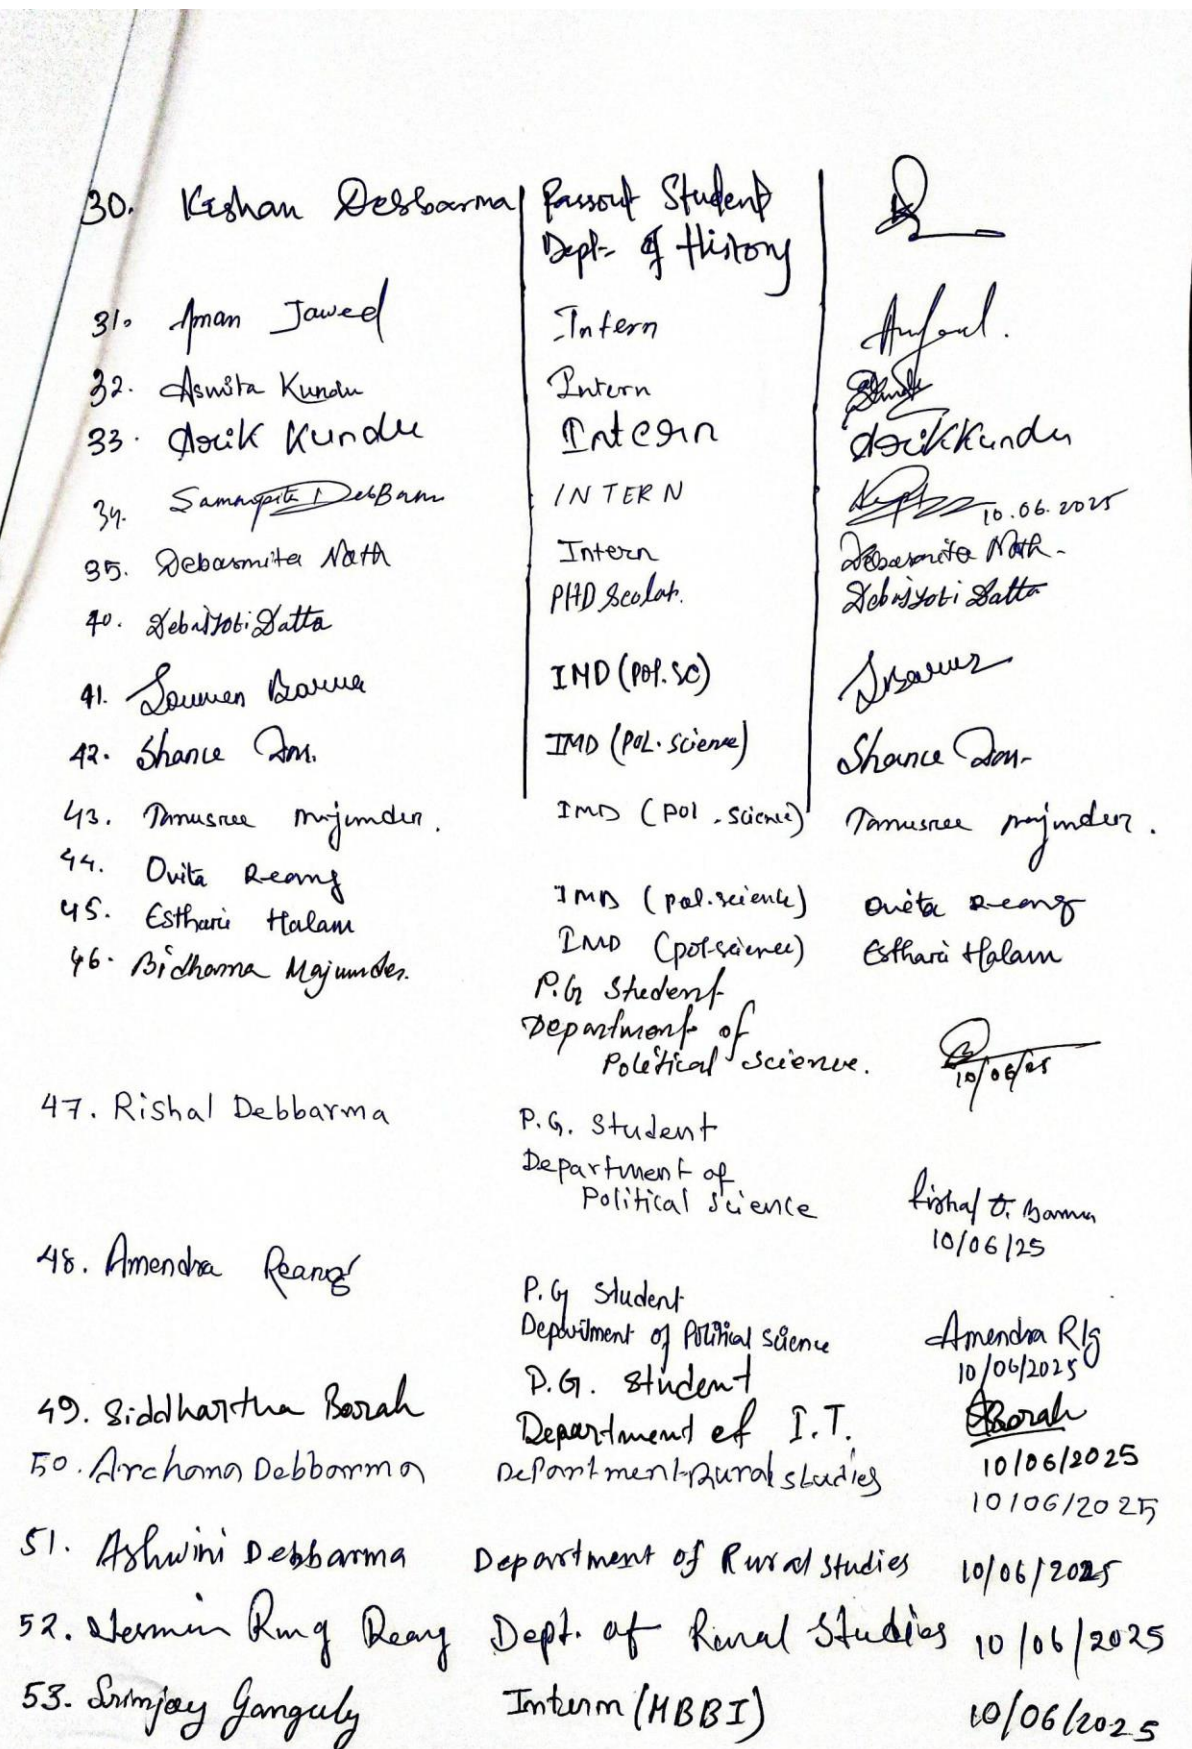 30. Kishan Debbarma Passout Student
Dept. of History
31. Aman Jaweed Intern
32. Asmita Kundu Intern
33. Arik Kundu Intern Arik Kundu
34. DebBarm INTERN 10.06.2025
35. Debasmita Nath Intern Debasmita Nath-
40. Debajyoti Datta PHD Scolar. Debajyoti Datta
41. Soumen Barua IMD (Pol.SC)
42. Shance Das. IMD (POL. Science) Shance Das-
43. Tanusree Majumder. IMD (pol. science) Tanusree Majumder.
44. Ovita Reang IMD (pol.science) Ovita Reang
45. Esthari Halam IMD (pol science) Esthari Halam
46. Majumder. P.G Student
Department of
Political Science. 10/06/25
47. Rishal Debbarma P.G. Student
Department of
Political Science Rishal D. Barma
10/06/25
48. Amendra Reang P.G Student
Department of Political Science Amendra Rlg
10/06/2025
49. Siddhartha Borah P.G. Student
Department of I.T. Borah
10/06/2025
50. Archana Debbarma Department Rural studies
10/06/2025
51. Ashwini Debbarma Department of Rural studies 10/06/2025
52. Reang Dept. of Rural Studies 10/06/2025
53. Srinjoy Ganguly Intern (MBBI) 10/06/2025